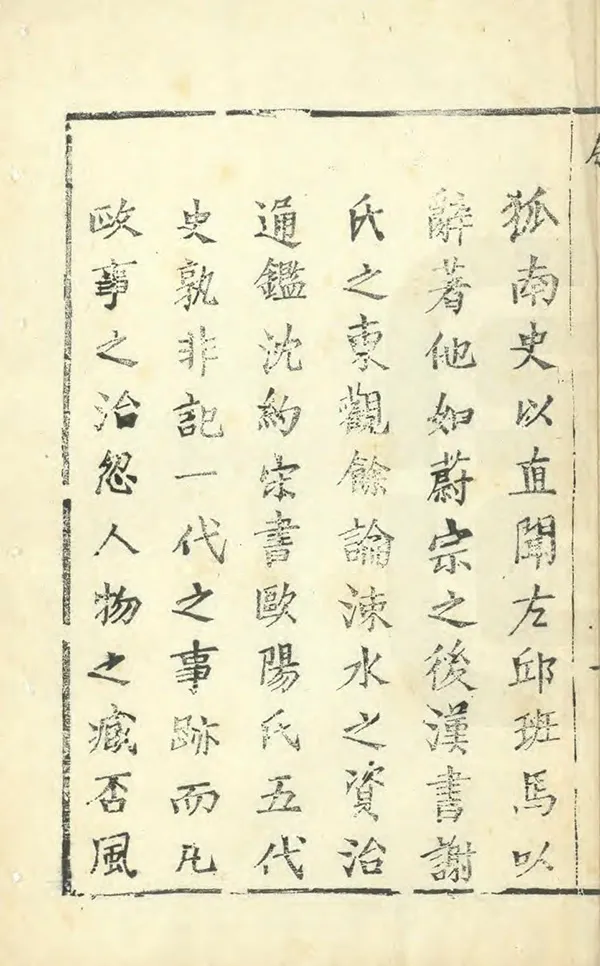 狐南史以直聞左邱班馬以
辭著他如蔚宗之後漢書謝
氏之東觀餘論涑水之資治
通鑑沈約宋書歐陽氏五代
史孰非記一代之事跡而凡
政事之治忽人物之臧否風